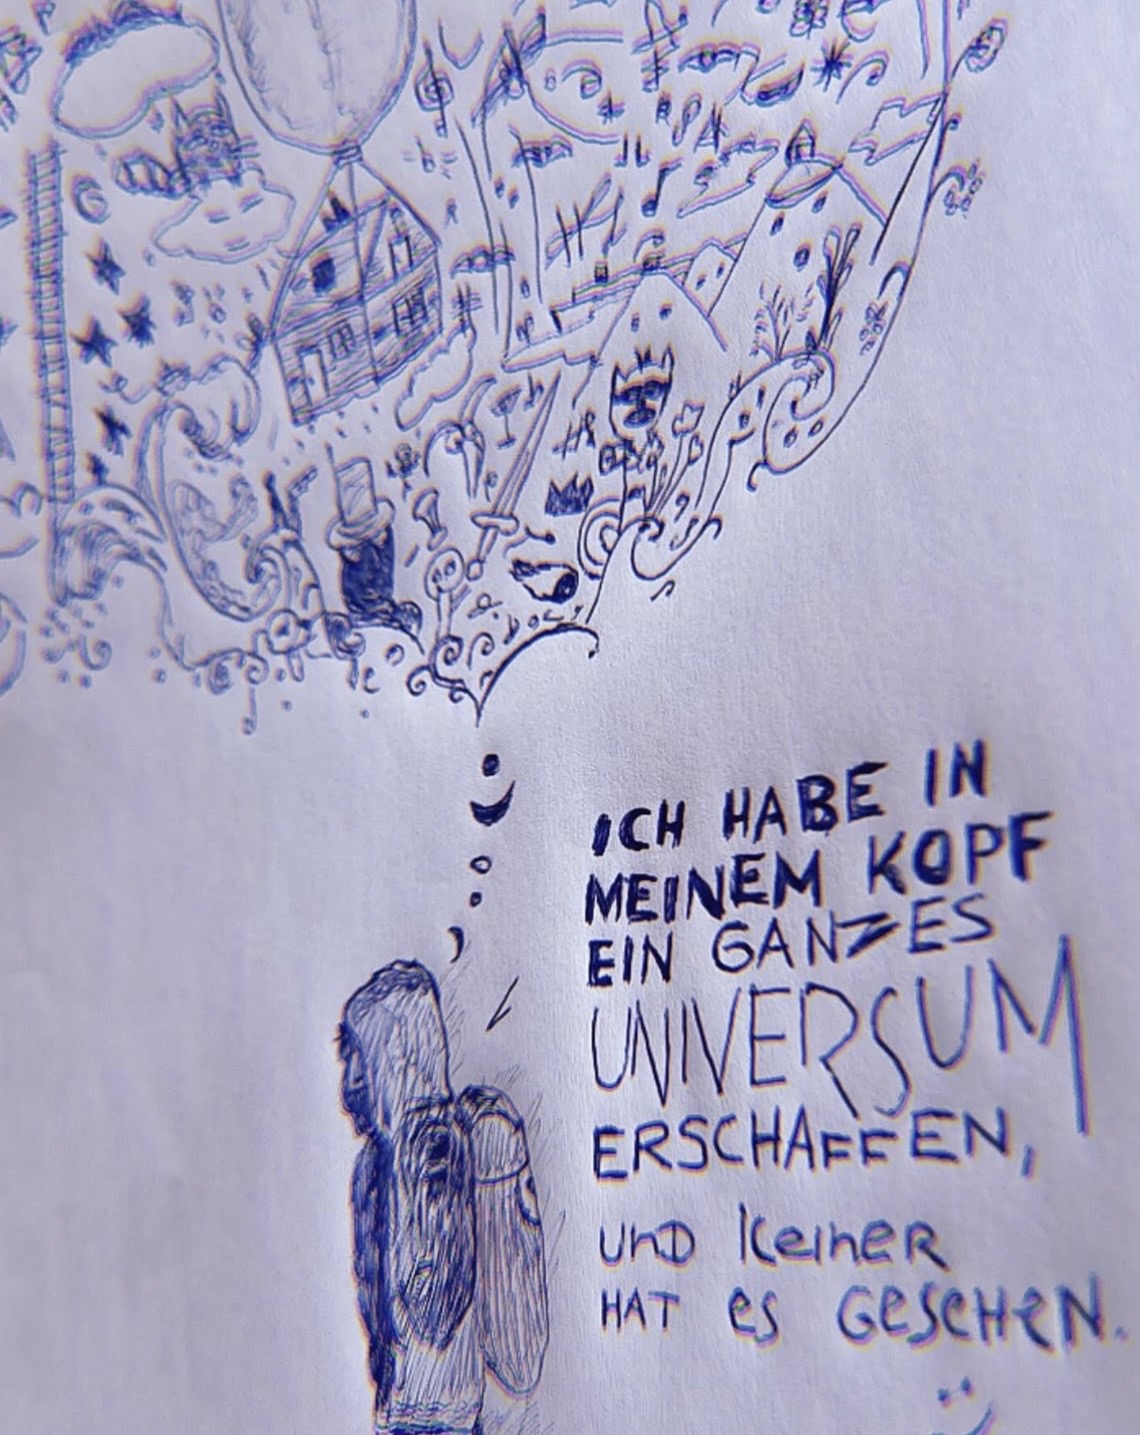 ICH HABE IN
MEINEM KOPF
EIN GANZES
UNIVERSUM
ERSCHAFFEN,
UND KEINER
HAT ES GESEHEN.